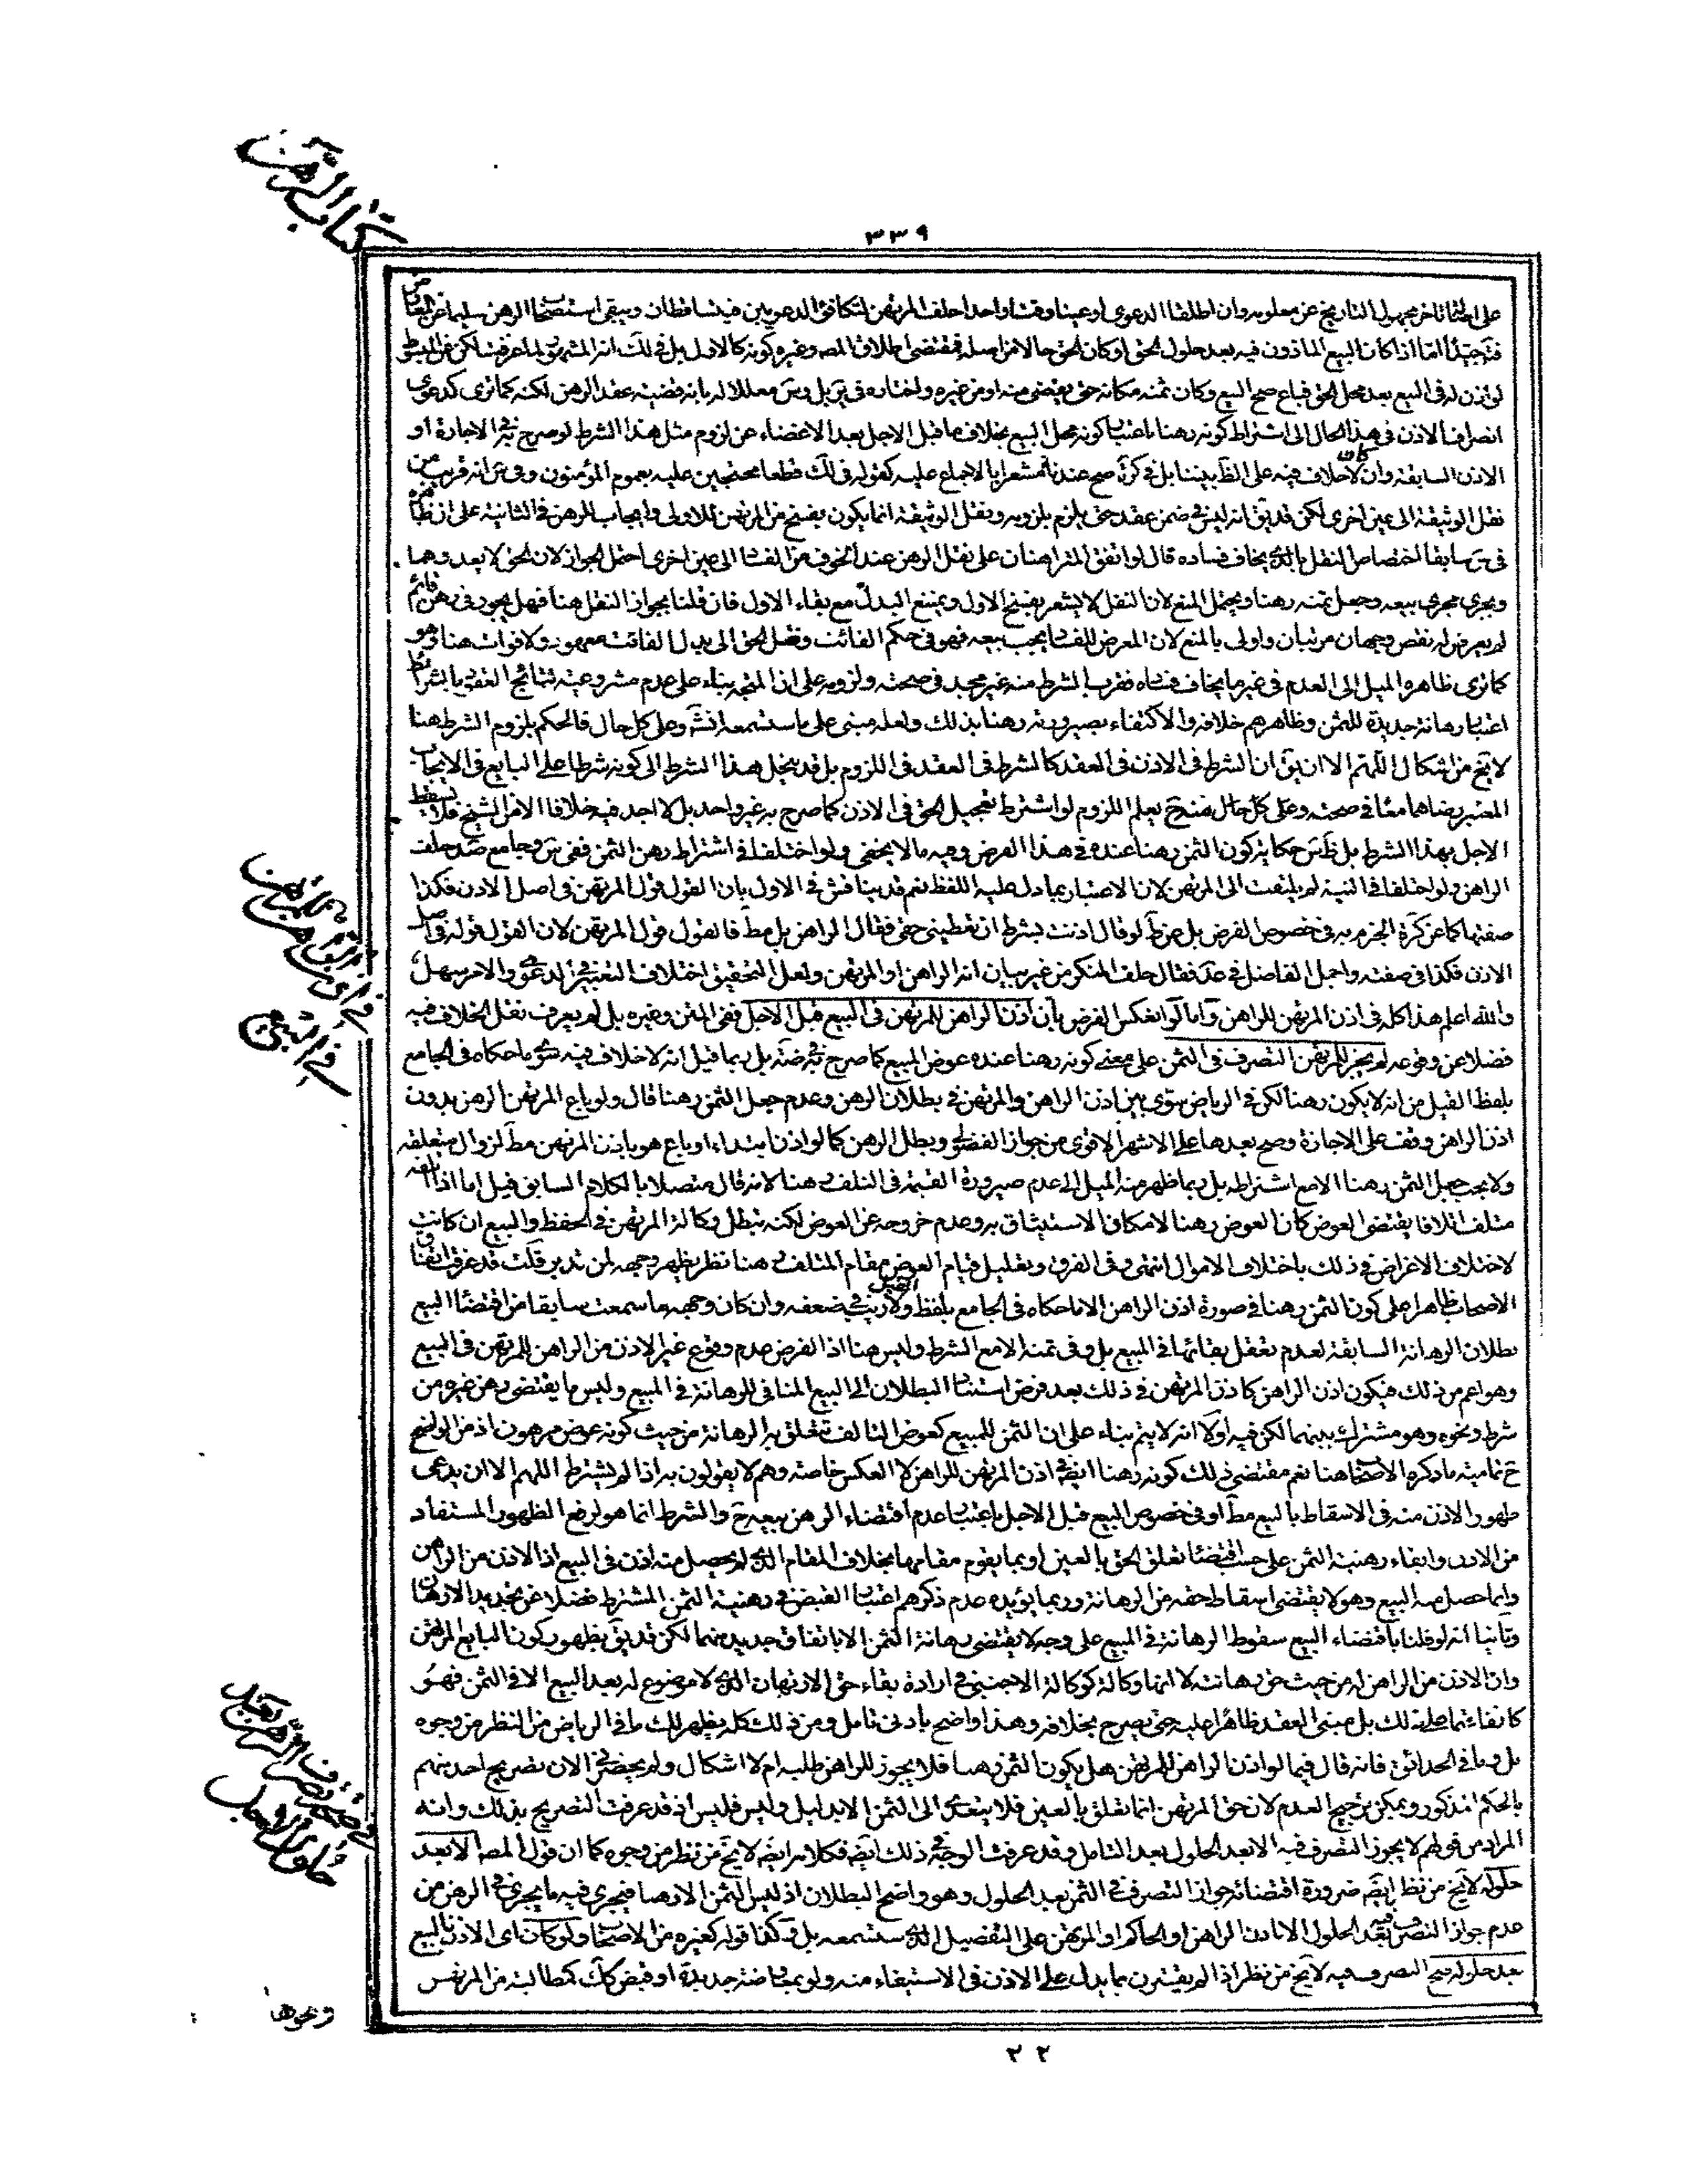 كتاب الرهن
٣٣٩
على اصالة تاخر مجهول التاريخ عن معلومه وان اطلقا الدعوى او عينا وقتا واحدا حلف المرتهن لتكافؤ الدعويين فيتساقطان ويبقى استصحاب الرهن سليما عن
اما اذا كان البيع الماذون فيه بعد حلول الحق او كان الحق حالا من اصله فمقتضى اطلاق المص وغيره كونه كالاول بل في لك انه المشهور لما عرفت لكن عن المبسوط
لو اذن له في البيع بعد محل الحق فباع صح البيع وكان ثمنه مكانه حتى يقضى منه او من غيره واختاره في بل وس معللا له بانه قضية عقد الرهن لكنه كما ترى كدعوى
انصراف الاذن في هذا الحال الى اشتراط كونه رهنا باعتبار كونه محل البيع بخلاف ما قبل الاجل بعد الاغضاء عن لزوم مثل هذا الشرط لو صرح به في الاجازة او
الاذن السابقة وان كان لا خلاف فيه على الظ بيننا بل في كرة صح عندنا مشعرا بالاجماع عليه كقوله في لك قطعا محتجين عليه بعموم المؤمنون
نقل الوثيقة الى عين اخرى لكن قد يق انه ليس في ضمن عقد حتى يلزم بلزومه ونقل الوثيقة انما يكون بفسخ من المرتهن للاولى وايجاب الرهن في الثانية على ان
في س سابقا اختصاص النقل بالذي يخاف فساده قال لو اتفق المتراهنان على نقل الرهن عند الخوف من الفساد الى عين اخرى احتمل الجواز لان الحق لا يعدوهما
ويجرى مجرى بيعه وجعل ثمنه رهنا ويحتمل المنع لان النقل لا يشعر بفسخ الاول ويمتنع البدل مع بقاء الاول فان قلنا بجواز النقل هنا فهل يجوز في رهن قائم
لم يعرض له نقص وجهان مرتبان واولى بالمنع لان المعرض للفساد يجب بيعه فهو في حكم الفائت ونقل الحق الى بدل الفائت معهود ولا فوات هنا وهو
كما ترى ظاهر او الميل الى العدم في غير ما يخاف فساده فقرب الشرط منه غير مجد في صحته ولزومه على ان المتجه بناء على عدم مشروعية نتائج العقود بالشرائط
اعتبار رهانة جديدة للثمن وظاهرهم خلافه والاكتفاء بصيرورته رهنا بذلك ولعله مبنى على ما ستسمعه انش وعلى كل حال فالحكم بلزوم الشرط هنا
لا يخ من اشكال اللهم الا ان يق ان الشرط في الاذن في العقد كالشرط في العقد في اللزوم بل قد ينحل هذا الشرط الى كونه شرطا على البايع في الايجاب
المعتبر رضاهما معا في صحته وعلى كل حال يعلم اللزوم لو اشترط تعجيل الحق في الاذن كما صرح به غير واحد بل لا اجد فيه خلافا الا من الشيخ فلا يسقط
الاجل بهذا الشرط بل ظ س حكاية كون الثمن رهنا عنده في هذا الفرض وفيه ما لا يخفى ولو اختلفا في اشتراط رهن الثمن ففى س وجامع صد حلف
الراهن ولو اختلفا في النية لم يلتفت الى المرتهن لان الاعتبار بما دل عليه اللفظ نعم قد يناقش في الاول بان القول قول المرتهن في اصل الاذن فكذا
صفتها كما عن كرة الجزم به في خصوص الفرض بل عن ط لو قال اذنت بشرط ان تعطينى حقى فقال الراهن بل مط فالقول قول المرتهن لان القول قوله في اصل
الاذن فكذا في صفته واحمل الفاضل في عد فقال حلف المنكر من غير بيان انه الراهن او المرتهن ولعل التحقيق اختلاف التعبير في الدعوى والامر سهل
والله اعلم هذا كله في اذن المرتهن للراهن واما لو انعكس الفرض بان اذن الراهن للمرتهن في البيع قبل الاجل ففى المتن وغيره بل لم يعرف نقل الخلاف فيه
فضلا عن وقوعه لم يجز للمرتهن التصرف في الثمن على معنى كونه رهنا عنده عوض المبيع كما صرح به في ضة بل ربما قيل انه لا خلاف فيه سوى ما حكاه في الجامع
بلفظ القيل من انه لا يكون رهنا لكن في الرياض سوى بين اذن الراهن والمرتهن في بطلان الرهن وعدم جعل الثمن رهنا قال ولو باع المرتهن الرهن بدون
اذن الراهن وقف على الاجازة وصح بعدها على الاشهر الاقوى من جواز الفضولى وبطل الرهن كما لو اذن ابتداء او باع هو باذن المرتهن مط لزوال متعلقه
ولا يجب جعل الثمن رهنا الا مع اشتراطه بل ربما ظهر منه الميل الى عدم صيرورة القيمة في التلف هنا لانه قال متصلا بالكلام السابق قيل اما اذا اتلفه
متلف اتلافا يقتضى العوض كان العوض رهنا لامكان الاستيثاق به وعدم خروجه عن العوض لكنه تبطل وكالة المرتهن في الحفظ والبيع ان كانت
لاختلاف الاغراض في ذلك باختلاف الاموال انتهى وفى الفرق وتعليل قيام العوض مقام المتلف هنا نظر يظهر وجهه لمن تدبر قلت قد عرفت اتفاق
الاصحاب ظاهرا على كون الثمن رهنا في صورة اذن الراهن الا ما حكاه في الجامع بلفظ القيل ولا ريب في ضعفه وان كان وجهه ما سمعت سابقا من اقتضاء البيع
بطلان الرهانة السابقة لعدم تعقل بقائها في المبيع بل وفى ثمنه الا مع الشرط وليس هنا اذ الفرض عدم وقوع غير الاذن من الراهن للمرتهن في البيع
وهو اعم من ذلك فيكون اذن الراهن كاذن المرتهن في ذلك بعد فرض استناد البطلان الى البيع المنافى للرهانة في المبيع وليس ما يقتضى رهن غيره من
شرط ونحوه وهو مشترك بينهما لكن فيه اولا انه لا يتم بناء على ان الثمن للمبيع كعوض التالف تتعلق به الرهانة من حيث كونه عوض مرهون اذ من الواضح
ح تمامية ما ذكره الاصحاب هنا نعم مقتضى ذلك كونه رهنا ايضا في اذن المرتهن للراهن لا العكس خاصة وهم لا يقولون به اذا لم يشترط اللهم الا ان يدعى
ظهور الاذن منه في الاسقاط بالبيع مط او في خصوص البيع قبل الاجل باعتبار عدم اقتضاء الرهن بيعه ح والشرط انما هو لرفع الظهور المستفاد
من الاذن وابقاء رهنية الثمن على حسب اقتضاء تعلق الحق بالعين او بما يقوم مقامها بخلاف المقام الذي لم يحصل منه اذن في البيع اذ الاذن من الراهن
وانما حصل منه البيع وهو لا يقتضى اسقاط حقه من الرهانة وربما يؤيده عدم ذكرهم اعتبار القبض في رهنية الثمن المشترط فضلا عن تجديد الارتهان
وثانيا انه لو قلنا باقتضاء البيع سقوط الرهانة في المبيع على وجه لا يقتضى رهانة الثمن الا باتفاق جديد منهما لكن قد يق بظهور كون البايع المرتهن
وان الاذن من الراهن له من حيث حق رهانته لا انها وكالة كوكالة الاجنبى في ارادة بقاء حق الارتهان الذي لا موضوع له بعد البيع الا في الثمن فهو
كاتفاقهما على ذلك بل مبنى العقد ظاهرا عليه حتى يصرح بخلافه وهذا واضح بادنى تامل ومن ذلك كله يظهر لك ما في الرياض من النظر من وجوه
بل وما في الحدائق فانه قال فيما لو اذن الراهن للمرتهن هل يكون الثمن رهنا فلا يجوز للراهن طلبه ام لا اشكال ولم يحضرني الان تصريح احد منهم
بالحكم المذكور ويمكن ترجيح العدم لان حق المرتهن انما تعلق بالعين فلا يتعدى الى الثمن الا بدليل وليس فليس اذ قد عرفت التصريح بذلك وانه
المراد من قولهم لا يجوز التصرف فيه الا بعد الحلول بعد التامل وقد عرفت الوجه في ذلك ايضا فكلامه ايضا لا يخ من نظر من وجوه كما ان قول المص الا بعد
حلوله لا يخ من نظر ايضا ضرورة اقتضائه جواز التصرف في الثمن بعد الحلول وهو واضح البطلان اذ ليس الثمن الا رهنا فيجرى فيه ما يجرى في الرهن من
عدم جواز التصرف فيه بعد الحلول الا باذن الراهن او الحاكم او المرتهن على التفصيل الذي ستسمعه بل وكذا قوله كغيره من الاصحاب ولو كان اى الاذن بالبيع
بعد حلوله صح التصرف فيه لا يخ من نظر اذا لم يقترن بما يدل على الاذن في الاستيفاء منه ولو بمعاوضة جديدة او قبض كك كمطالبته من المرتهن
في البيع
حلول الاجل
ونحوها
٢٢